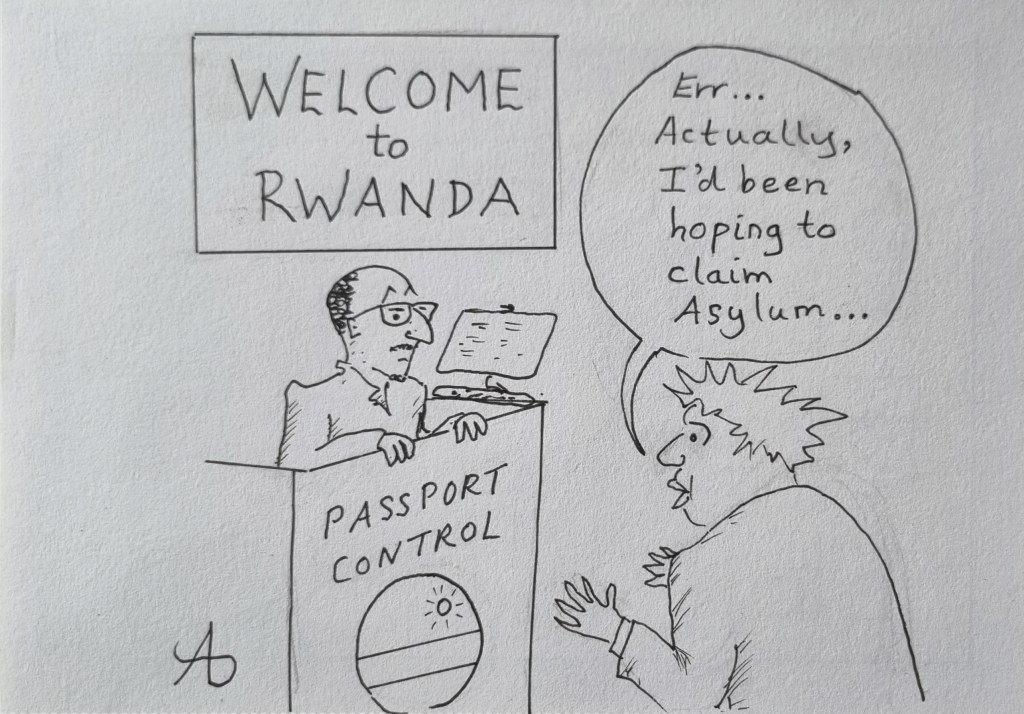 WELCOME
to
RWANDA
Err...
Actually,
I'd been
hoping to
claim
Asylum...
PASSPORT
CONTROL